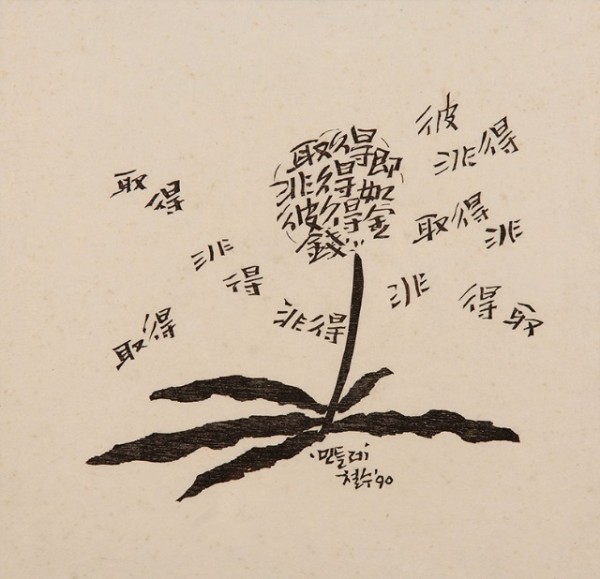 彼
取得即
非得
非得如
取得
彼得金
取得
非
錢
非
得
非
得取
非得
取得
'민들레'
철수 '90